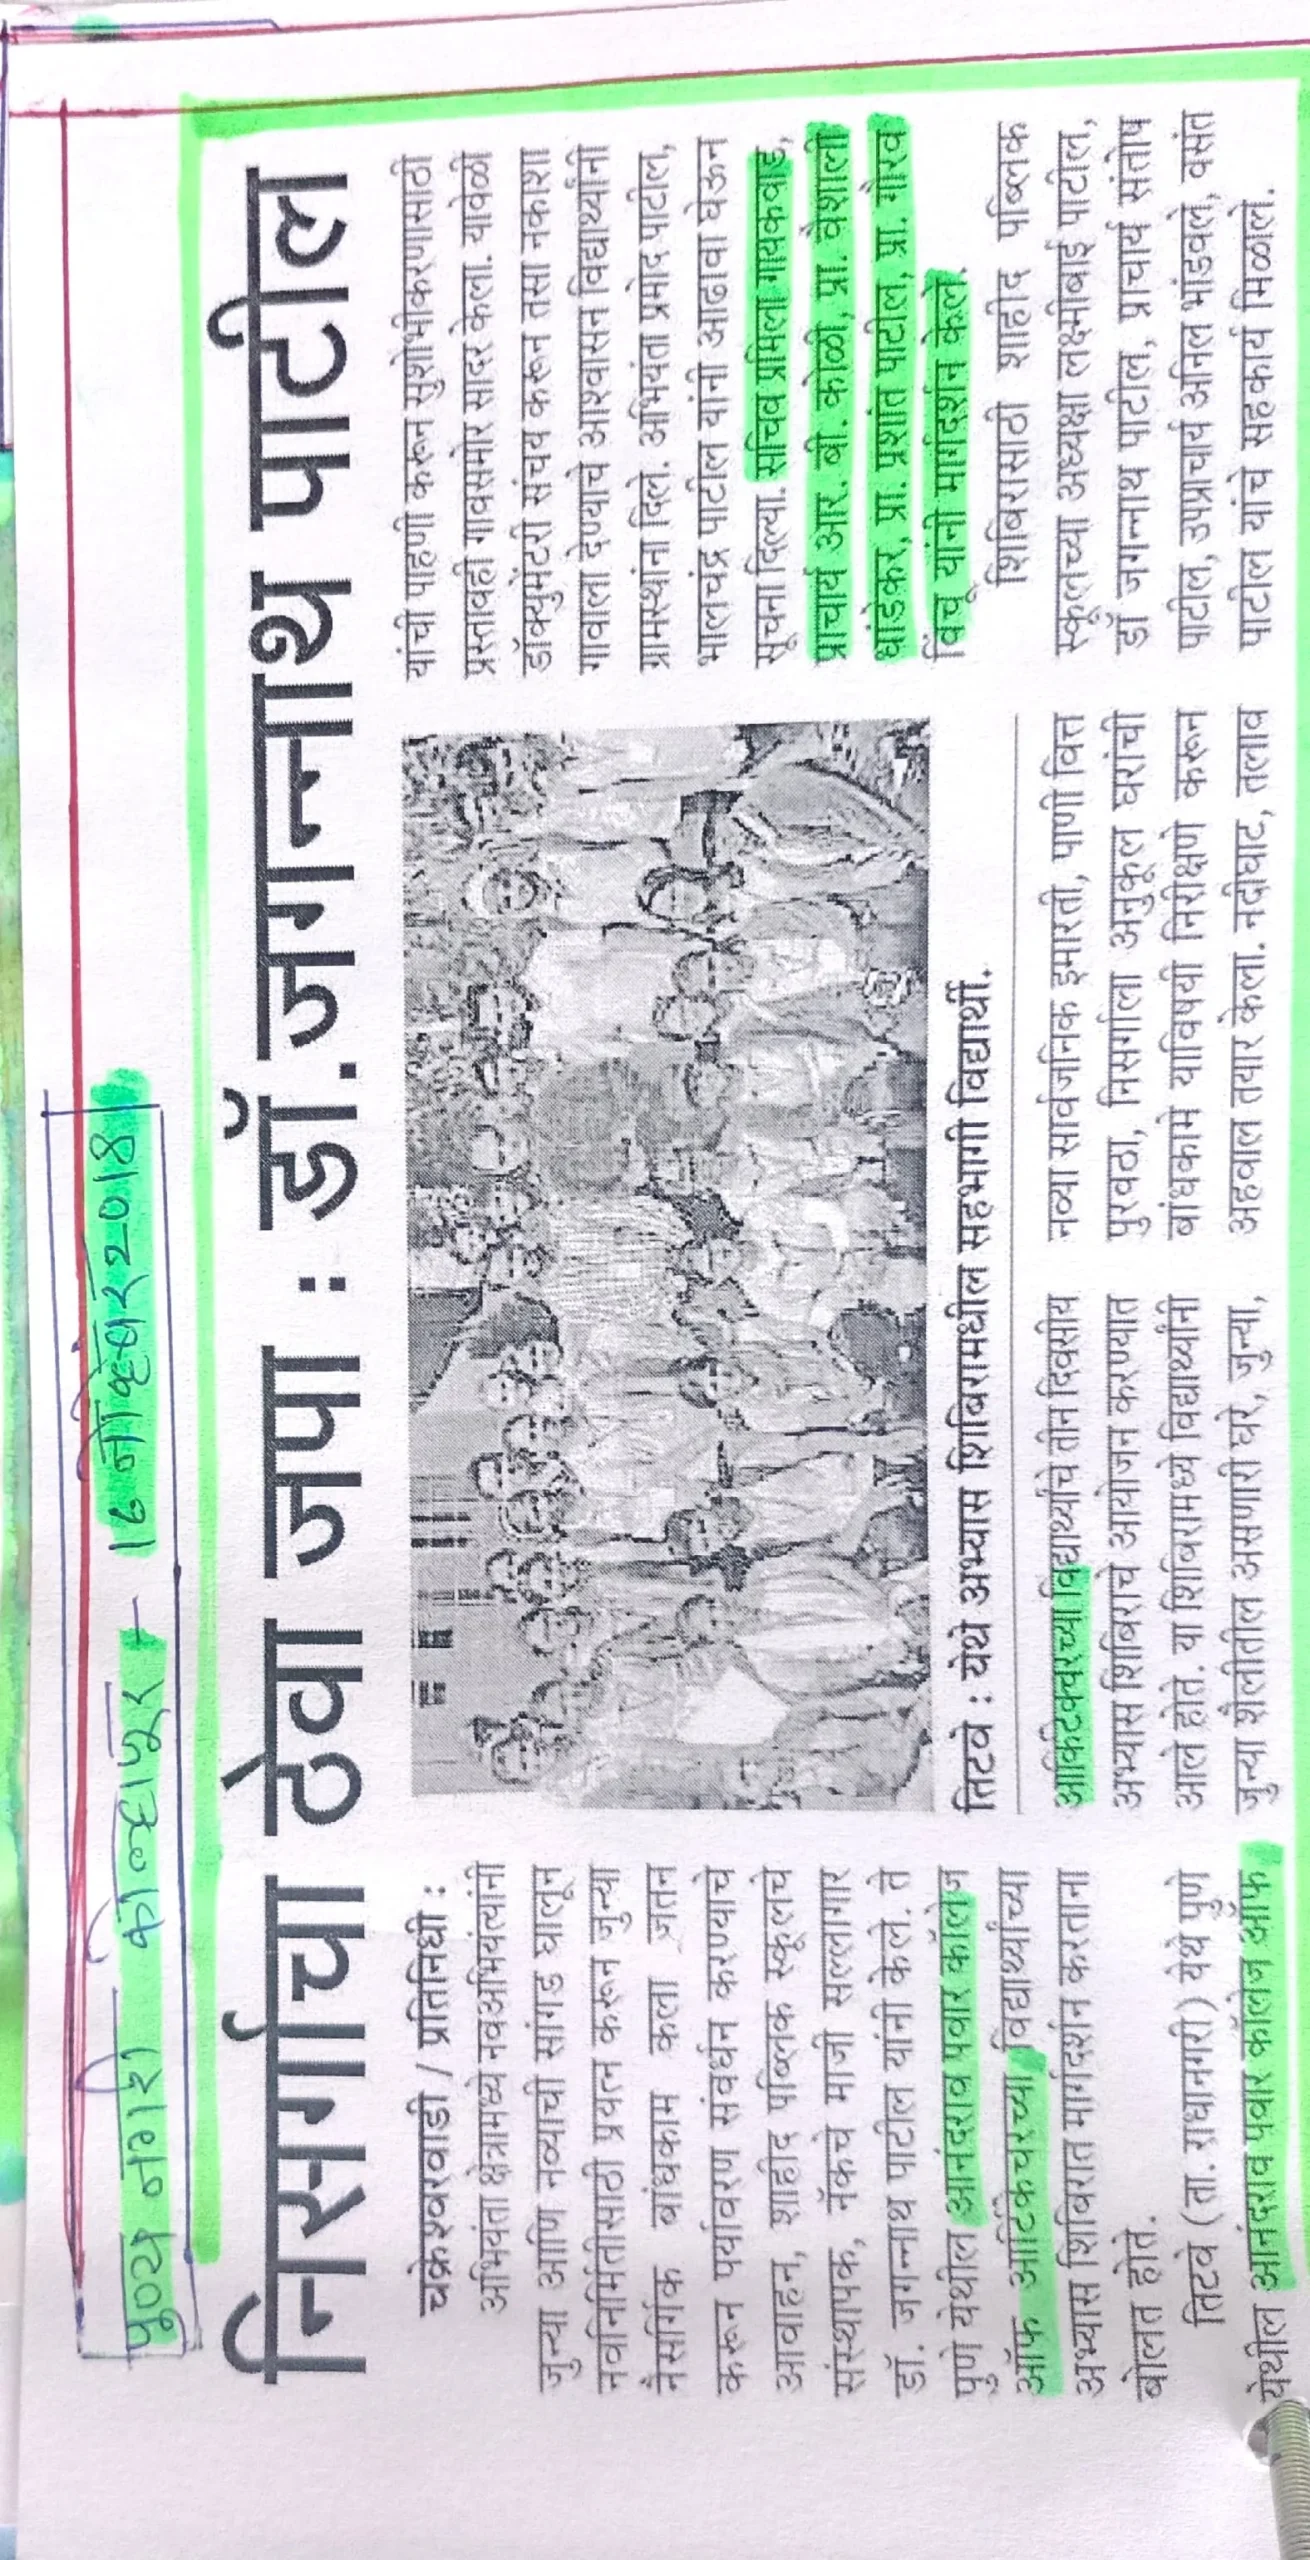 पुण्य नगरी कोल्हापूर - १८ नोव्हेंबर २०१८
निसर्गाचा ठेवा जपा : डॉ.जगन्नाथ पाटील
चक्रेश्वरवाडी / प्रतिनिधी :
अभियंता क्षेत्रामध्ये नवअभियंत्यांनी
जुन्या आणि नव्याची सांगड घालून
नवनिर्मितीसाठी प्रयत्न करून जुन्या
नैसर्गिक बांधकाम कला जतन
करून पर्यावरण संवर्धन करण्याचे
आवाहन, शाहीद पब्लिक स्कूलचे
संस्थापक, नॅकचे माजी सल्लागार
डॉ. जगन्नाथ पाटील यांनी केले. ते
पुणे येथील आनंदराव पवार कॉलेज
ऑफ आर्टिक्चरच्या विद्यार्थ्यांच्या
अभ्यास शिबिरात मार्गदर्शन करताना
बोलत होते.
तिटवे (ता. राधानगरी) येथे पुणे
येथील आनंदराव पवार कॉलेज ऑफ
तिटवे : येथे अभ्यास शिबिरामधील सहभागी विद्यार्थी.
आर्किटेक्चरच्या विद्यार्थ्यांचे तीन दिवसीय
अभ्यास शिबिराचे आयोजन करण्यात
आले होते. या शिबिरामध्ये विद्यार्थ्यांनी
जुन्या शैलीतील असणारी घरे, जुन्या,
नव्या सार्वजनिक इमारती, पाणी वित
पुरवठा, निसर्गाला अनुकूल घरांची
बांधकामे याविषयी निरीक्षणे करून
अहवाल तयार केला. नदीघाट, तलाव
यांची पाहणी करून सुशोभीकरणासाठी
प्रस्तावही गावासमोर सादर केला. यावेळी
डॉक्युमेंटरी संचय करून तसा नकाशा
गावाला देण्याचे आश्वासन विद्यार्थ्यांनी
ग्रामस्थांना दिले. अभियंता प्रमोद पाटील,
भालचंद्र पाटील यांनी आढावा घेऊन
सूचना दिल्या. सचिव प्रमिला गायकवाड,
प्राचार्य आर. बी. कोळी, प्रा. वैशाली
धांडेकर, प्रा. प्रशांत पाटील, प्रा. गौरव
विंचू यांनी मार्गदर्शन केले.
शिबिरासाठी शाहीद पब्लिक
स्कूलच्या अध्यक्षा लक्ष्मीबाई पाटील,
डॉ जगन्नाथ पाटील, प्राचार्य संतोष
पाटील, उपप्राचार्य अनिल मांडवले, वसंत
पाटील यांचे सहकार्य मिळाले.